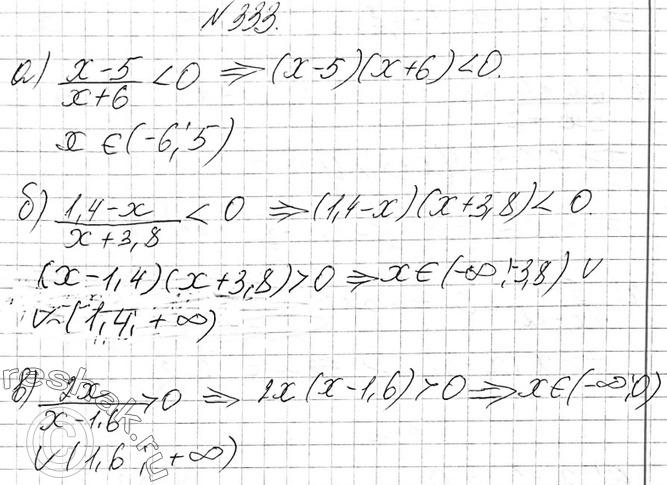 №333.
а) x-5/x+6 <0 ⇒ (x-5)(x+6)<0.
x ∈(-6; 5)
б) 1,4-x/x+3,8 < 0 ⇒ (1,4-x)(x+3,8)< 0.
(x-1,4)(x+3,8)>0 ⇒ x∈(-∞; -3,8) ∨
∨ (1,4; +∞)
в) 2x/x-1,6 >0 ⇒ 2x(x-1,6)>0 ⇒ x∈(-∞; 0)
∨ (1,6; +∞)
reshak.ru